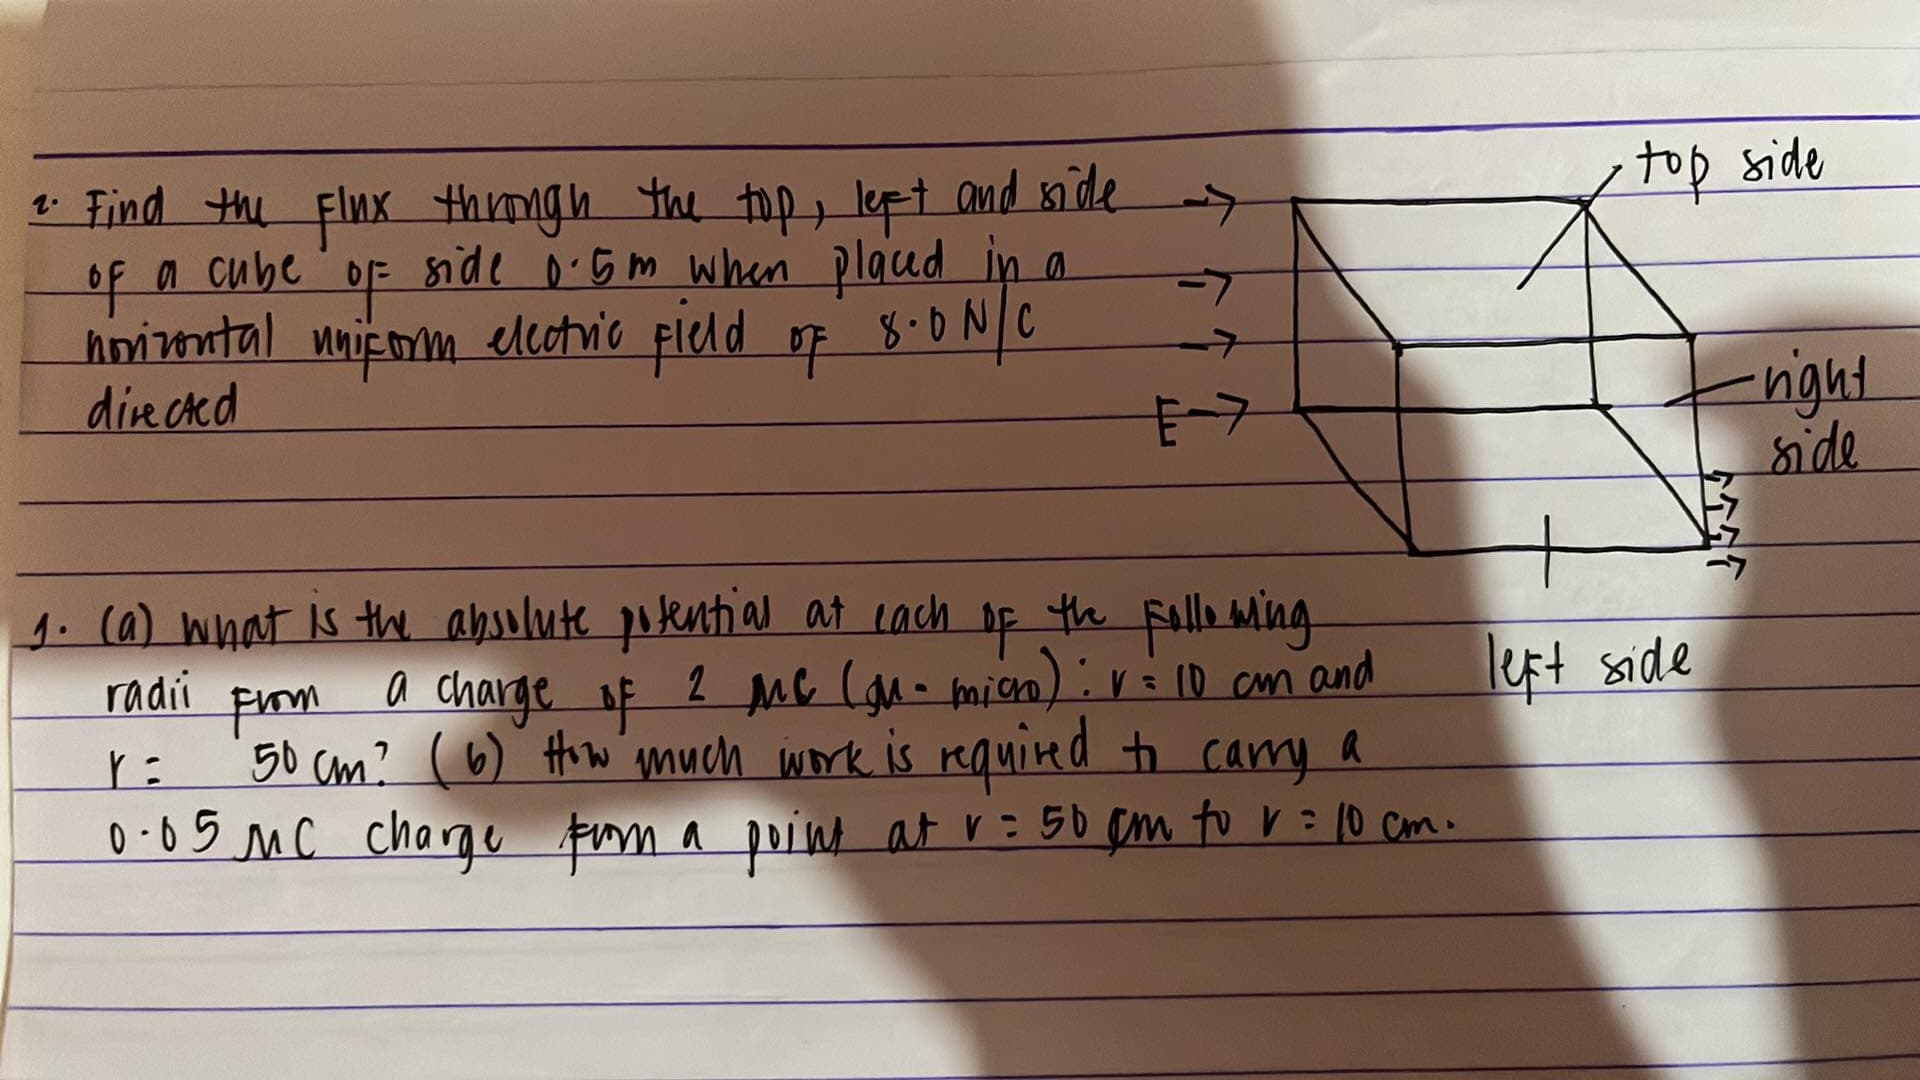 2. Find the flux through the top, left and side
of a cube of side 0.5m when placed in a
horizontal uniform electric field of 8.0 N/C
directed
E
top side
right
side
left side
1. (a) what is the absolute potential at each of the following
radii from a charge of 2 μC (μ - micro): r = 10 cm and
r = 50 cm? (b) How much work is required to carry a
0.05 μC charge from a point at r = 50 cm to r = 10 cm.